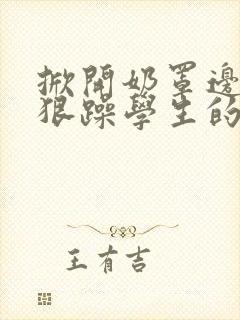 掀開奶罩邊
狠躁學生的
王有吉